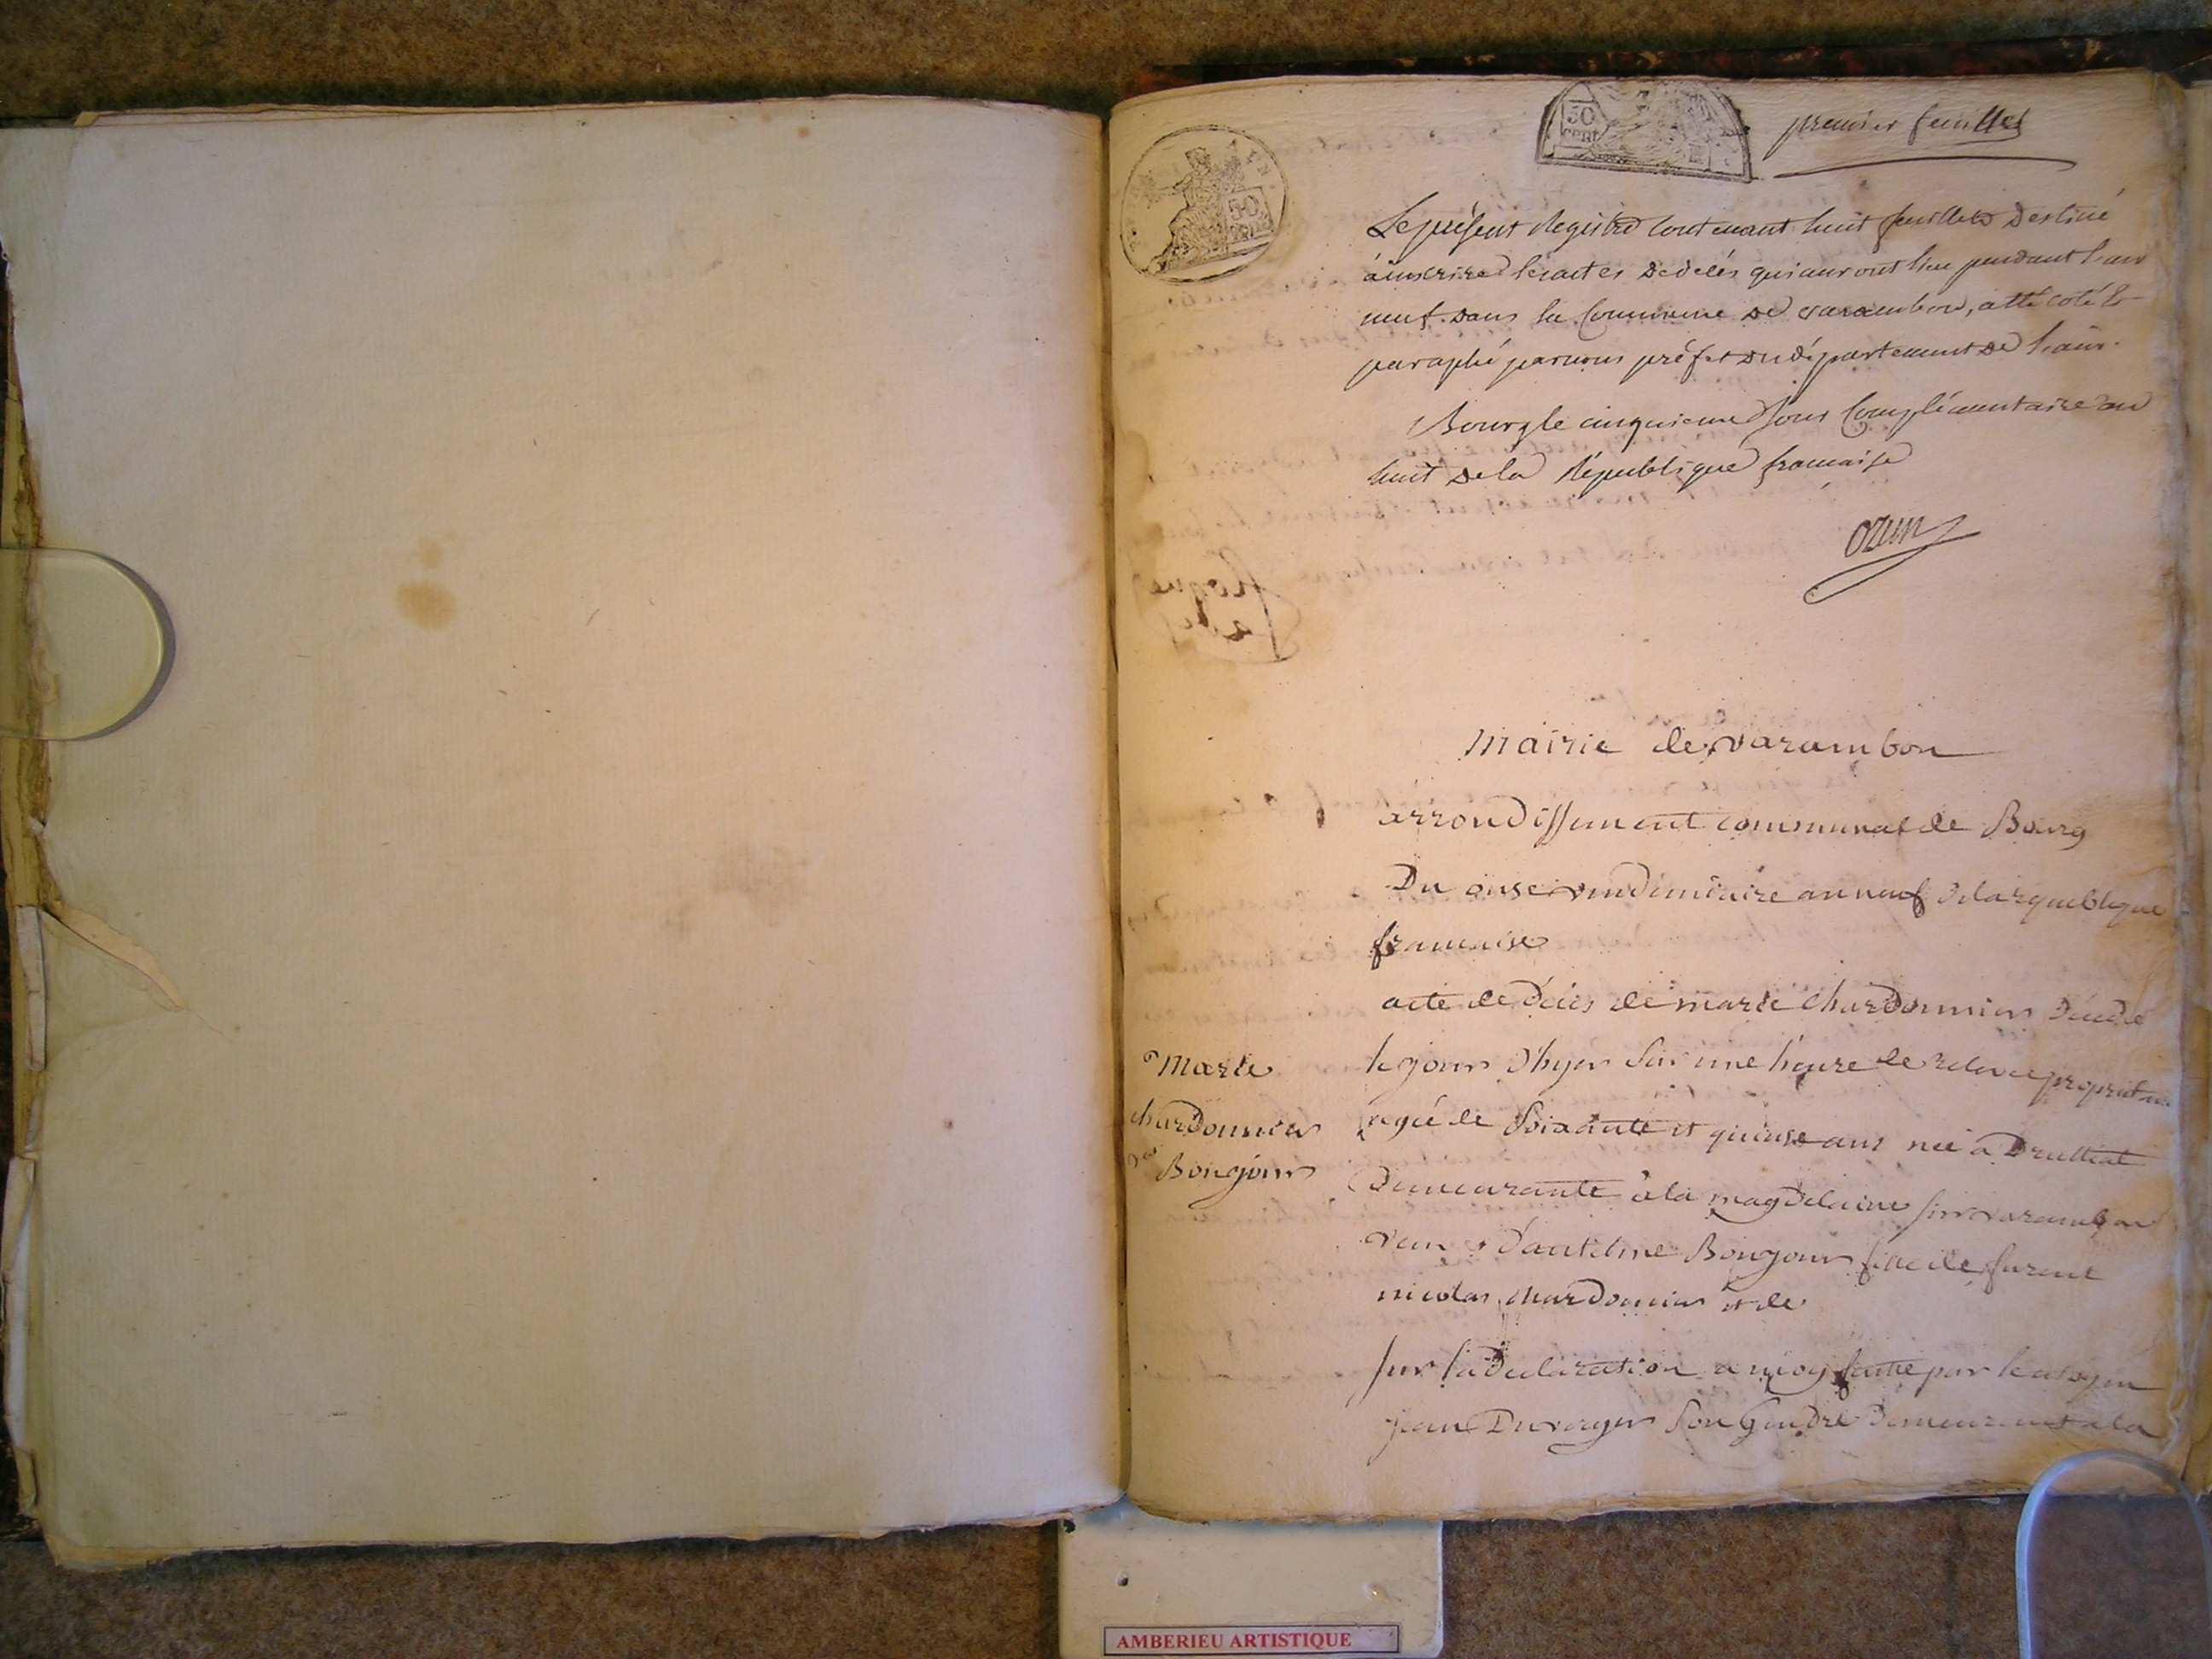 premier feuillet
50
cent
50
Le présent Registre contenant huit feuillets destiné
à inscrire les actes de décès qui auront lieu pendant l'an
neuf dans la Commune de varambon, a été coté &
paraphé par nous préfet du département de l'ain.
Bourg le cinquieme jour Complémentaire an
huit de la République francaise
ozun
Mairie de varambon
arrondissement communal de Bourg
Du onse vendemiaire an neuf de la republique
francaise
acte de déces de marie chardonnier décédé
le jour d'hyer sur une heure de relevée
Marie
chardonnier
Bonjour
agée de soixante et quinse ans née a Druillat
Demeurante à la magdelaine sur varambon
d'antelme Bonjour fille de furent
nicolas chardonnier et de
sur la declaration a moy faitte par le citoyen
jean Duverger son Gendre demeurant a la
AMBERIEU ARTISTIQUE